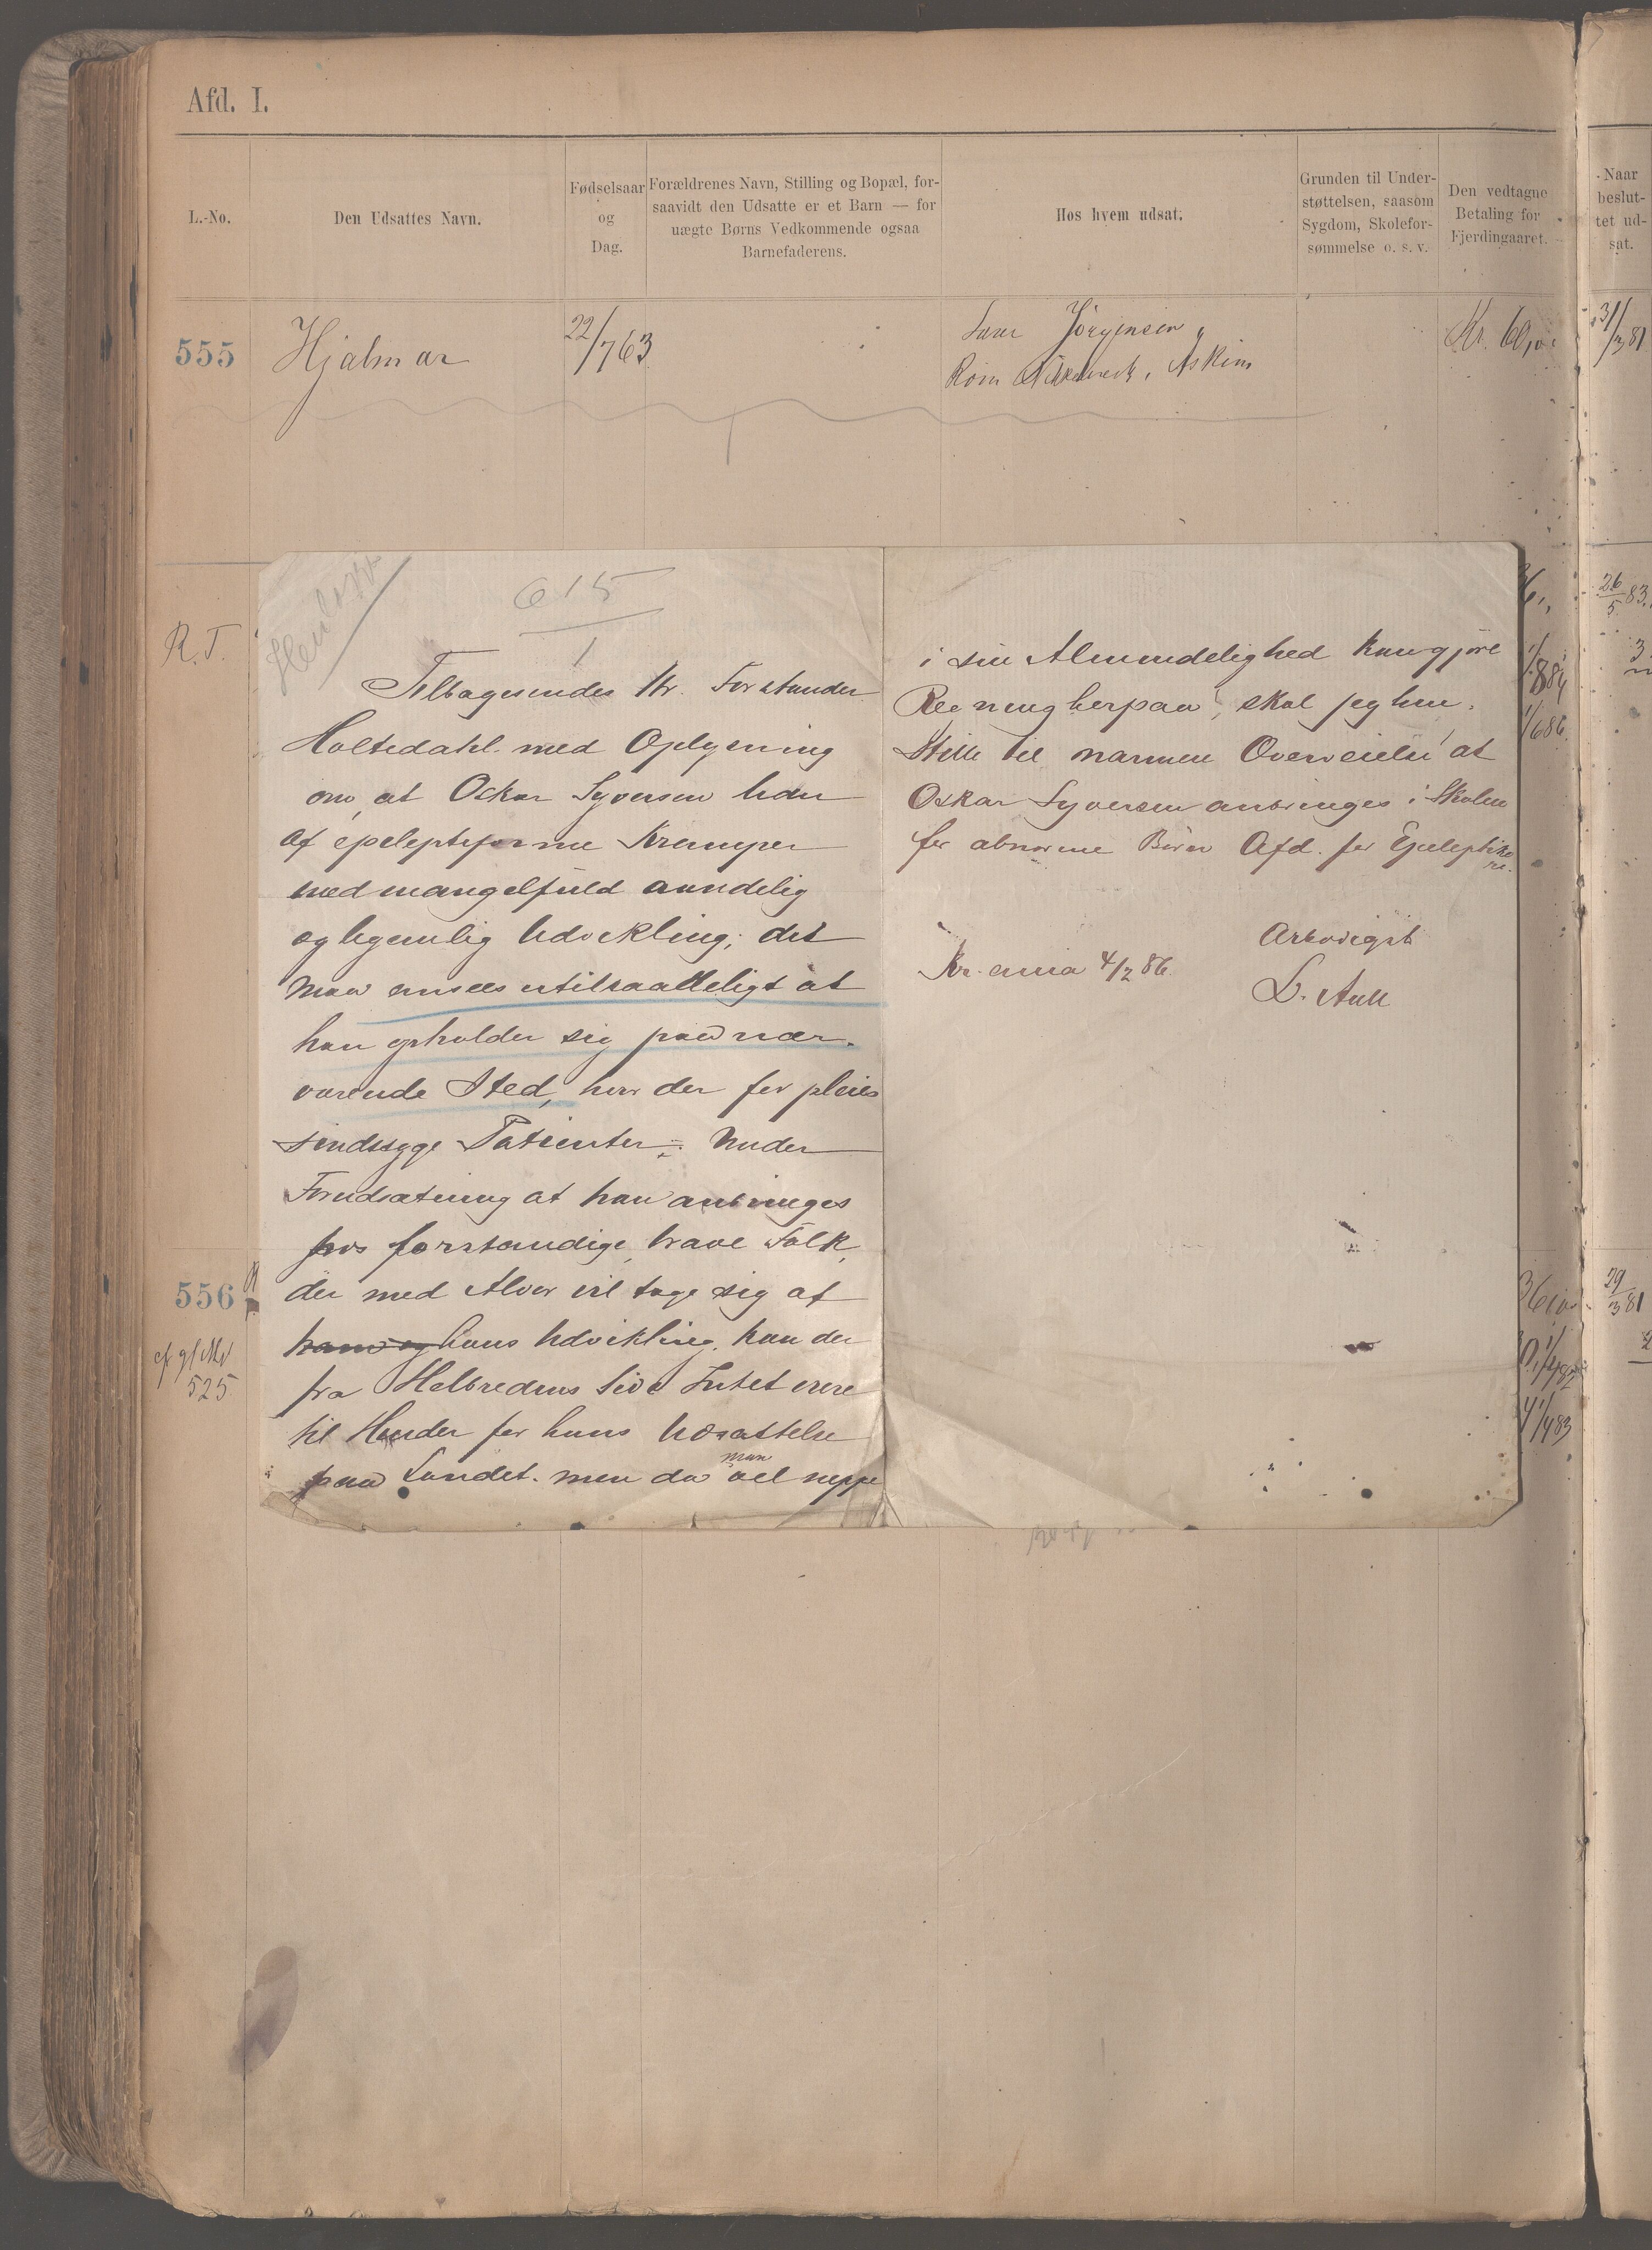 Afd. I.
L.-No.
Den Udsattes Navn.
Fødselsaar
og
Dag.
Forældrenes Navn, Stilling og Bopæl, for-
saavidt den Udsatte er et Barn — for
uægte Børns Vedkommende ogsaa
Barnefaderens.
Hos hvem udsat.
Grunden til Under-
støttelsen, saasom
Sygdom, Skolefor-
sømmelse o. s. v.
Den vedtagne
Betaling for
Fjerdingaaret.
Naar
beslut-
tet ud-
sat.
555
Hjalmar
22/7 63
Jörgensen
Askim
Kr. 60,
31/3 81
R. T.
26/5 83.
615
1
Tilbagesendes Hr. Forstander
Holtedahl med Oplysning
om, at Oskar Syversen lider
af epileptiforme Kramper
med mangelfuld aandelig
og legemlig Udvikling; det
maa ansees utilraadeligt at
han opholder sig paa nær-
værende Sted, hvor der før pleies
sindssyge Patienter. Under
Forudsætning at han anbringes
hos forstandige, brave Folk,
der med Alvor vil tage sig af
ham og hans Udvikling, kan der
fra Helbredens Side Intet være
til Hinder for hans Udsættelse
paa Landet. men da man vel neppe
i sin Almindelighed kan gjöre
Regning herpaa, skal jeg hen-
stille til nærmere Overveielse at
Oskar Syversen anbringes i Skolen
for abnorme Börn Afd. for Epileptike
re.
Ærbødigst
Kr.ania 4/2 86.
556
29/3 81
525